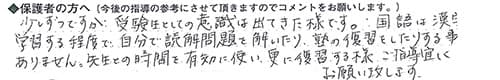 ◆保護者の方へ（今後の指導の参考にさせて頂きますのでコメントをお願いします。）
少しずつですが、受験生としての意識は出てきた様です。国語は漢字
学習する程度で、自分で読解問題を解いたり、塾の復習をしたりする事
ありません。先生との時間を有効に使い、更に復習する様、ご指導宜しく
お願い致します。